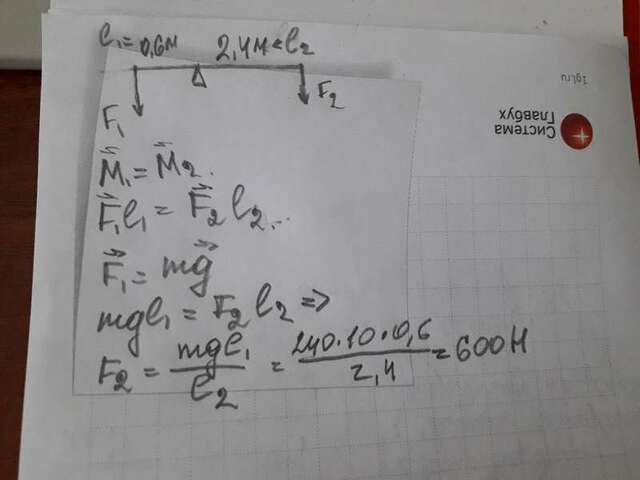 l₁ = 0,6м 2,4м = l₂
F₁ F₂
M⃗₁ = M⃗₂.
F⃗₁l₁ = F⃗₂l₂..
F⃗₁ = mg⃗
mgl₁ = F₂l₂ =>
F₂ = mgl₁ / l₂ = 240·10·0,6 / 2,4 = 600Н
1gl.ru
Система
Главбух